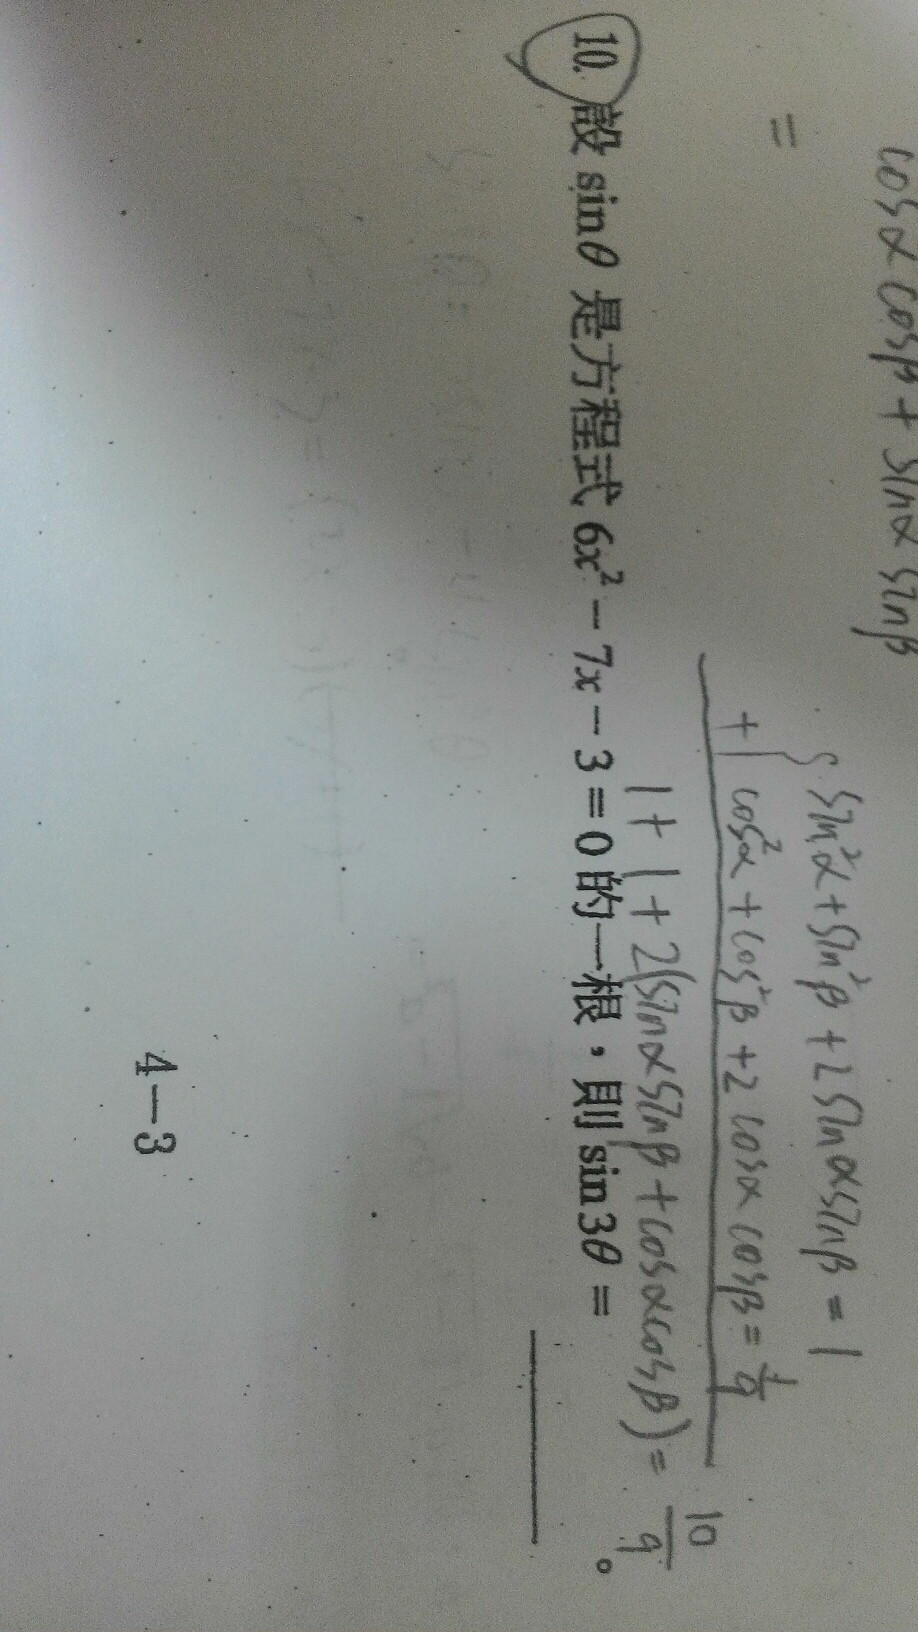 cosα cosβ + sinα sinβ
=
sin²α + sin²β + 2 sinα sinβ = 1
+) cos²α + cos²β + 2 cosα cosβ = 1/9
1 + 1 + 2(sinα sinβ + cosα cosβ) = 10/9
10. 設 sinθ 是方程式 6x² − 7x − 3 = 0 的一根，則 sin3θ = ________。
4−3